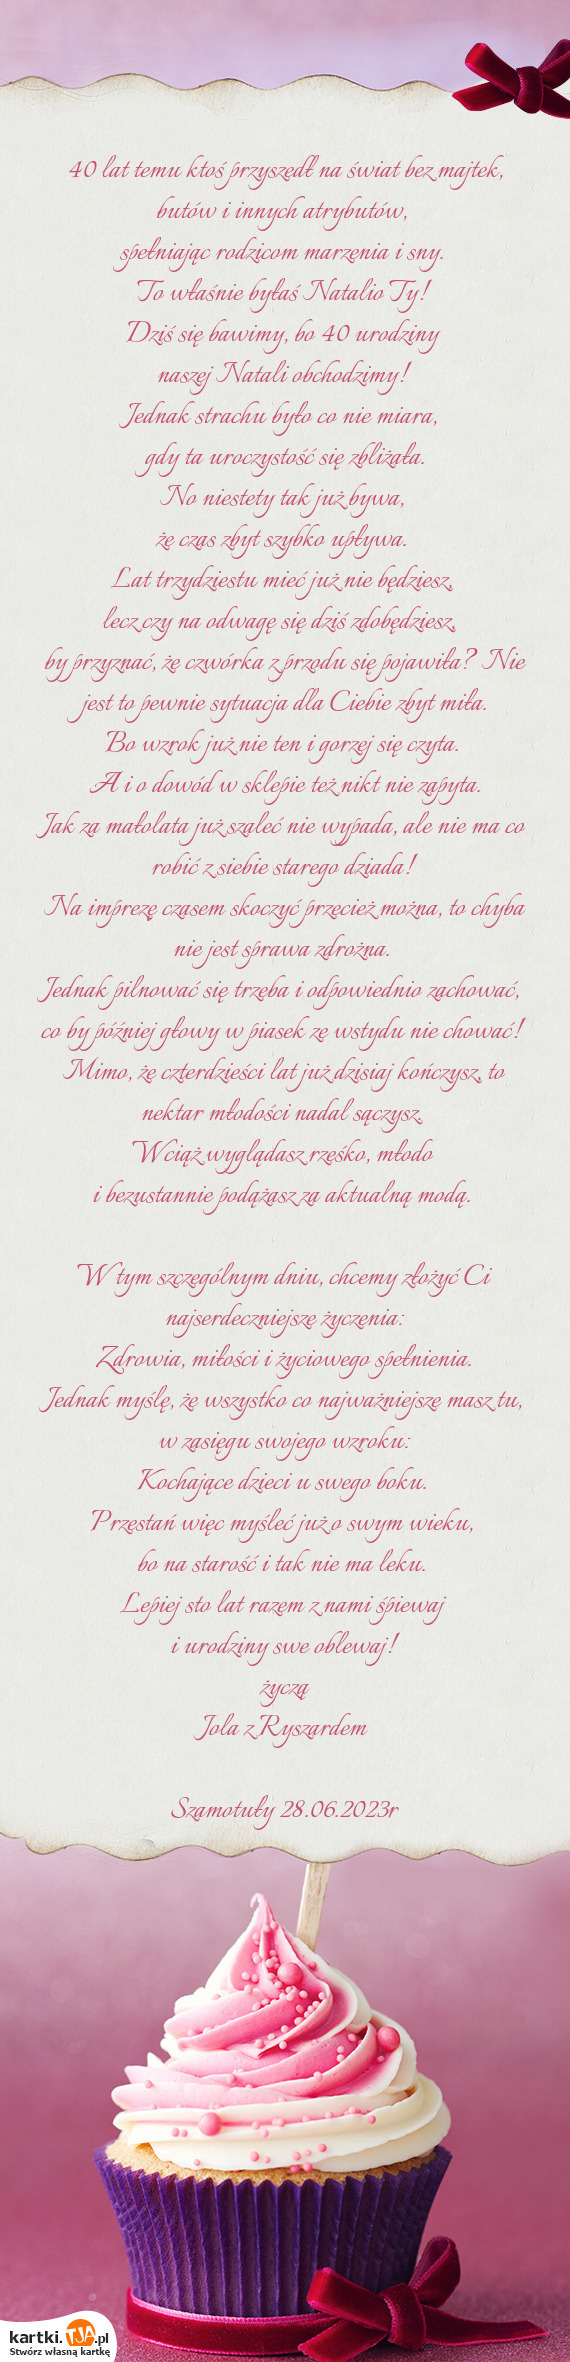 40 lat temu ktoś przyszedł na świat bez majtek,
butów i innych atrybutów,
spełniając rodzicom marzenia i sny.
To właśnie byłaś Natalio Ty!
Dziś się bawimy, bo 40 urodziny
naszej Natali obchodzimy!
Jednak strachu było co nie miara,
gdy ta uroczystość się zbliżała.
No niestety tak już bywa,
że czas zbyt szybko upływa.
Lat trzydziestu mieć już nie będziesz,
lecz czy na odwagę się dziś zdobędziesz,
by przyznać, że czwórka z przodu się pojawiła? Nie
jest to pewnie sytuacja dla Ciebie zbyt miła.
Bo wzrok już nie ten i gorzej się czyta.
A i o dowód w sklepie też nikt nie zapyta.
Jak za małolata już szaleć nie wypada, ale nie ma co
robić z siebie starego dziada!
Na imprezę czasem skoczyć przecież można, to chyba
nie jest sprawa zdrożna.
Jednak pilnować się trzeba i odpowiednio zachować,
co by później głowy w piasek ze wstydu nie chować!
Mimo, że czterdzieści lat już dzisiaj kończysz, to
nektar młodości nadal sączysz.
Wciąż wyglądasz rześko, młodo
i bezustannie podążasz za aktualną modą.
W tym szczególnym dniu, chcemy złożyć Ci
najserdeczniejsze życzenia:
Zdrowia, miłości i życiowego spełnienia.
Jednak myślę, że wszystko co najważniejsze masz tu,
w zasięgu swojego wzroku:
Kochające dzieci u swego boku.
Przestań więc myśleć już o swym wieku,
bo na starość i tak nie ma leku.
Lepiej sto lat razem z nami śpiewaj
i urodziny swe oblewaj!
życzą
Jola z Ryszardem
Szamotuły 28.06.2023r
kartki.TJA.pl
Stwórz własną kartkę